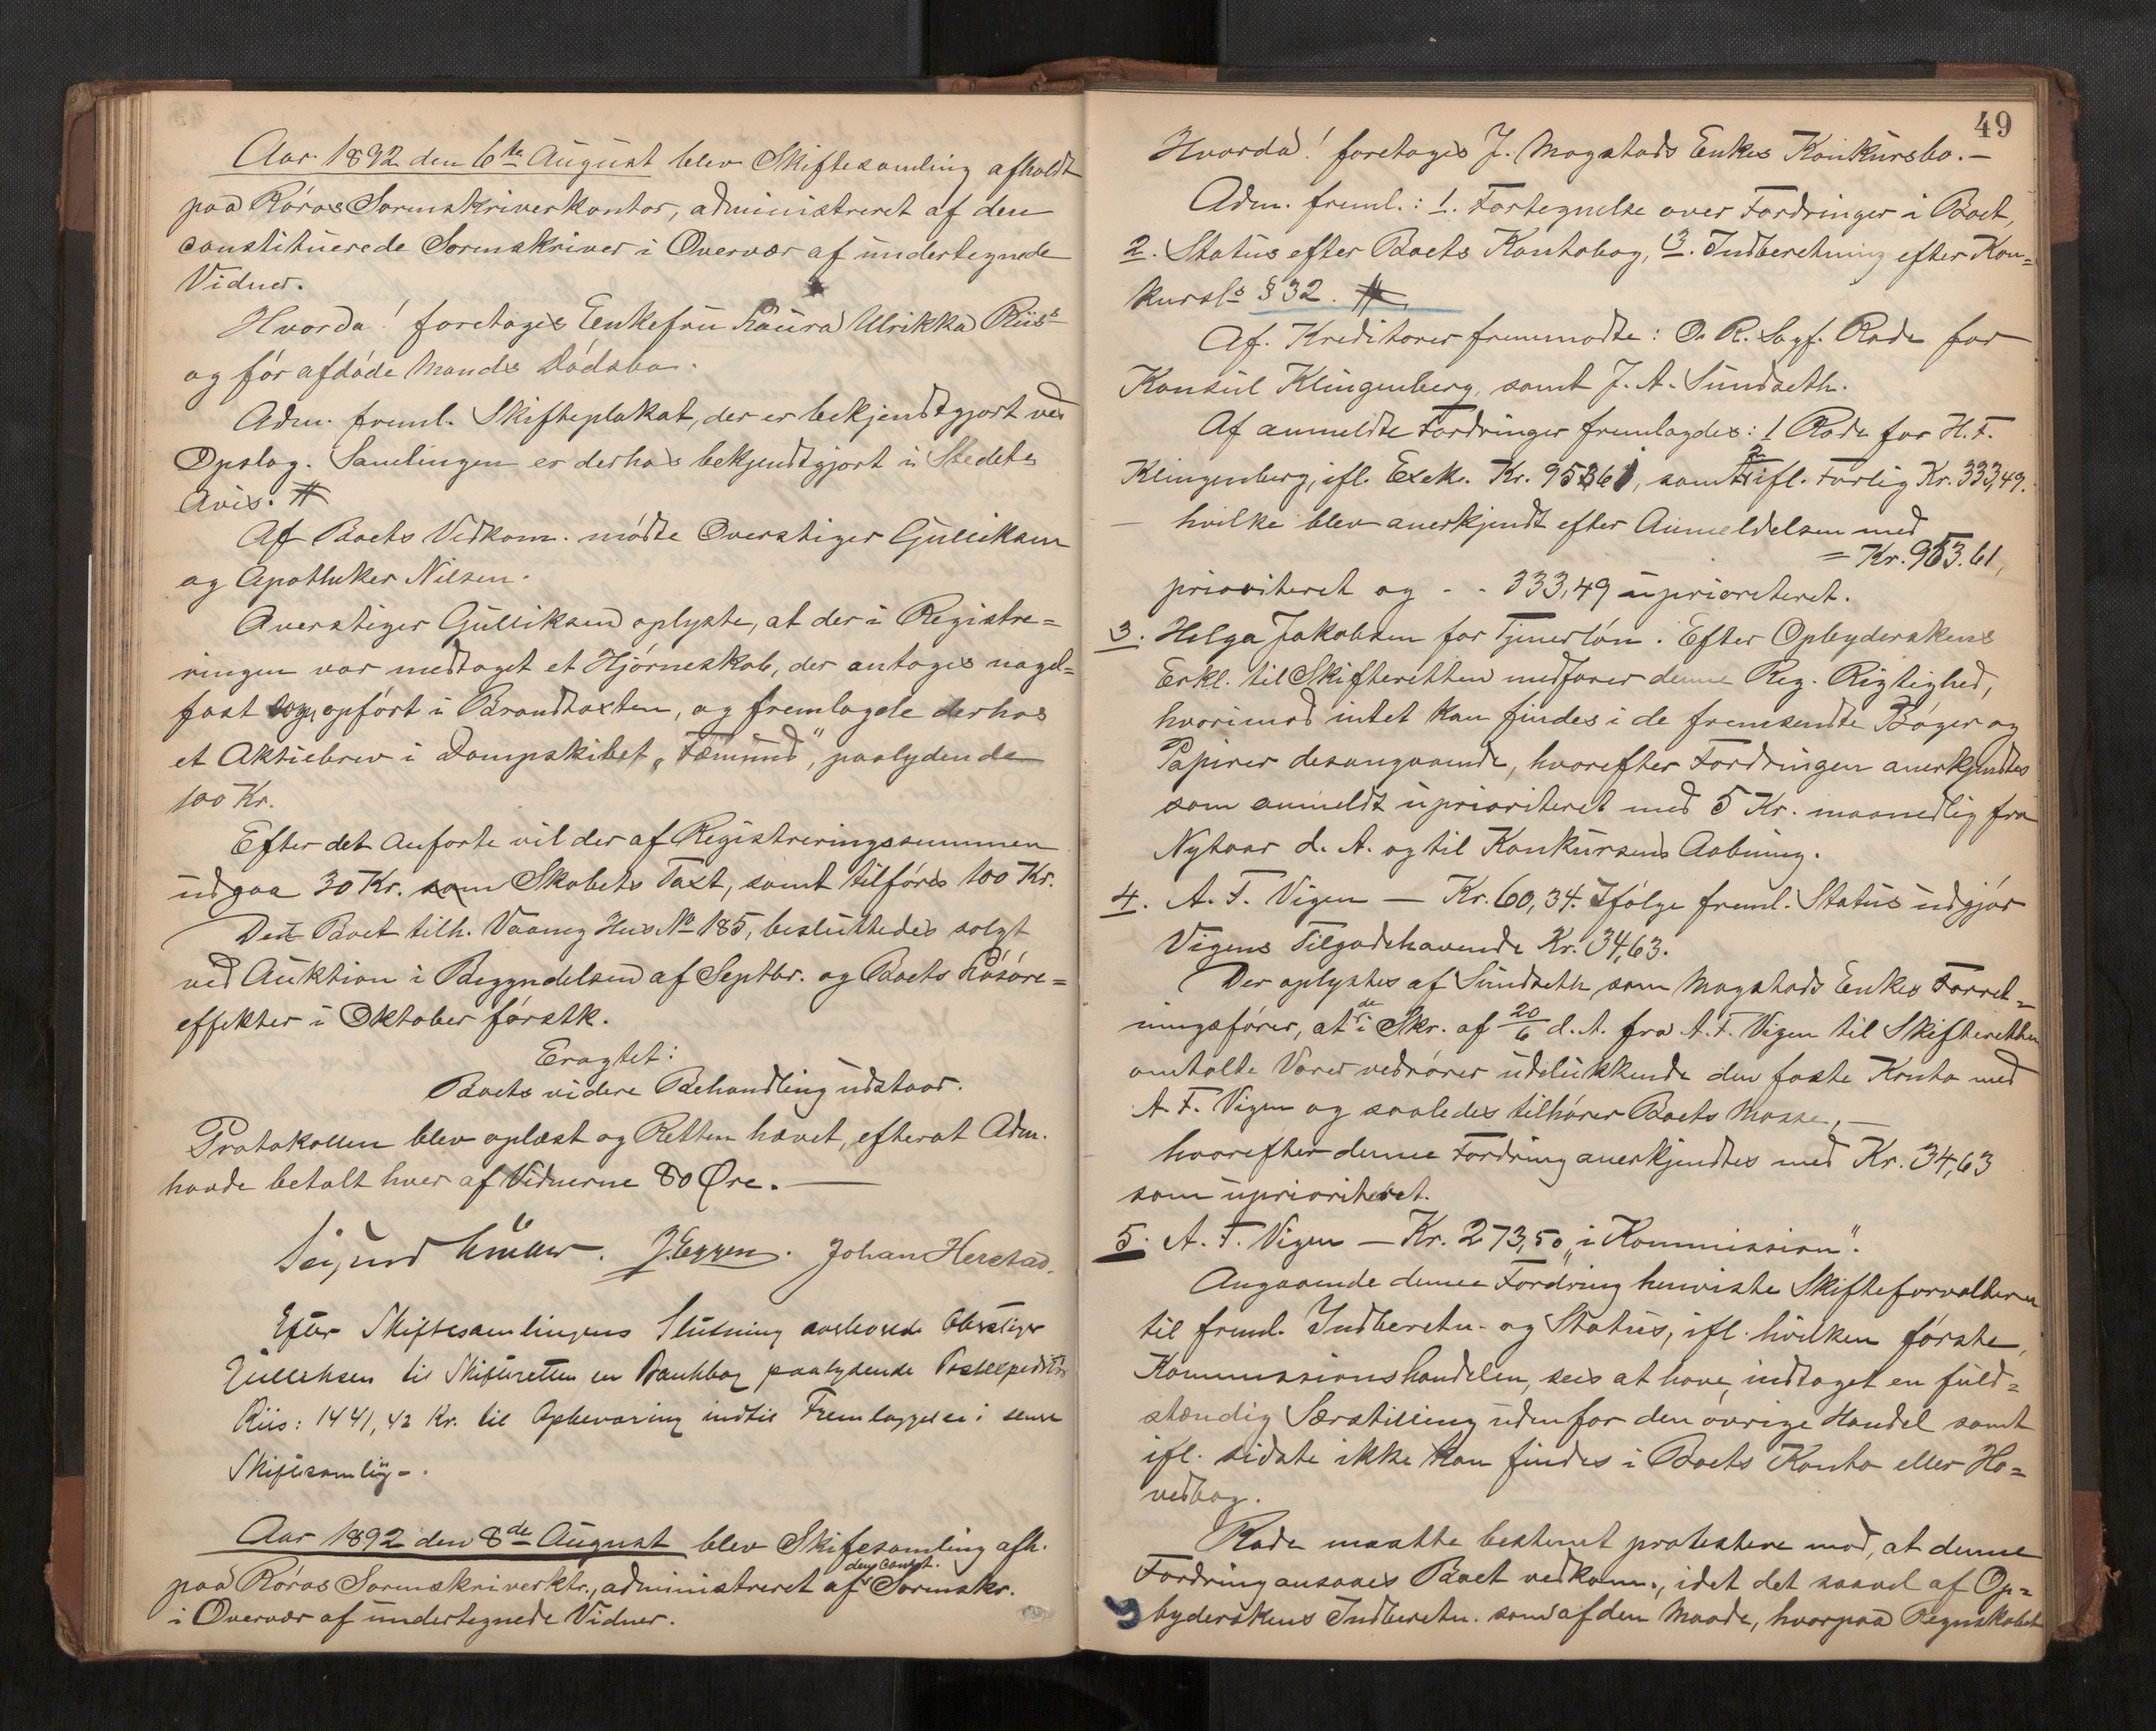 Aar 1892 den 6te August blev Skiftesamling afholdt
paa Röros Sorenskriverkontor, administreret af den
constituerede Sorenskriver i Overvær af undertegnede
Vidner.
Hvorda! foretoges Enkefru Laura Ulrikka Riis's
og før afdøde Mands Dødsbo.
Adm. freml. Skifteplakat, der er bekjendtgjort ved
Opslag. Samlingen er derhos bekjendtgjort i Stedets
Avis. #
Af Boets Vedkom. mødte Overstiger Gulliksen
og Apotheker Nilsen.
Overstiger Gulliksen oplyste, at der i Registre=
ringen var medtaget et Hjørneskab, der antages nagel=
fast og opført i Brandtaxten, og fremlagde derhos
et Aktiebrev i Dampskibet „Fæmund", paalydende
100 Kr.
Efter det Anførte vil der af Registreringssummen
udgaa 30 Kr. som Skabets Taxt, samt tilføres 100 Kr.
Det Boet tilh. Vaaning Hus No 185, besluttedes solgt
ved Auktion i Begyndelsen af Septbr. og Boets Løsøre=
effekter i Oktober førstk.
Eragtet:
Boets videre Behandling udstaar.
Protokollen blev oplæst og Retten hævet, efterat Adm.
havde betalt hver af Vidnerne 80 Øre. —
J. Eggen. Johan Herstad.
Efter Skiftesamlingens Slutning overleverede Oberstiger
Gulliksen til Skifteretten en Bankbog paalydende Postexpeditör
Riis: 1441,42 Kr. til Opbevaring indtil Fremlæggelse i senere
Skiftesamling.
Aar 1892 den 8de August blev Skiftesamling afh.
paa Röros Sorenskriverktr., administreret af den const. Sorenskr.
i Overvær af undertegnede Vidner.
49
Hvorda! foretoges J. Magstads Enkes Konkursbo. —
Adm. freml.: 1. Fortegnelse over Fordringer i Boet,
2. Status efter Boets Kontobog, 3. Indberetning efter Kon=
kursls § 32. #
Af Kreditorer fremmødte: O. R. Sagf. Rode for
Konsul Klingenberg, samt J. A. Sundseth.
Af anmeldte Fordringer fremlagdes: 1 Rode for H. F.
Klingenberg, ifl. Exek. Kr. 953,61, samt 2 ifl. Forlig Kr. 333,49.
— hvilke blev anerkjendt efter Anmeldelsen med
= Kr. 953.61,
prioriteret og - - 333,49 uprioriteret.
3. Helga Jakobsen for Tjenerløn. Efter Opbyderskens
Erkl. til Skifteretten medfører denne Reg. Rigtighed,
hvorimod intet kan findes i de fremsendte Bøger og
Papirer desangaaende, hvorefter Fordringen anerkjendtes
som anmeldt uprioriteret med 5 Kr. maanedlig fra
Nytaar d. A. og til Konkursens Aabning.
4. A. F. Vigen — Kr. 60,34. Ifølge freml. Status udgjør
Vigens Tilgodehavende Kr. 34,63.
Der oplystes af Sundseth, som Magstads Enkes Forret=
ningsfører, at de i Skr. af 20/6 d. A. fra A. F. Vigen til Skifteretten
omtalte Varer vedrører udelukkende den faste Konto med
A. F. Vigen og saaledes tilhører Boets Masse, —
hvorefter denne Fordring anerkjendtes med Kr. 34,63
som uprioriteret.
5. A. F. Vigen — Kr. 273,50 „i Kommission".
Angaaende denne Fordring henviste Skifteforvalteren
til freml. Indberetn. og Status, ifl. hvilken første,
Kommissionshandelen, sees at have indtaget en fuld=
stændig Særstilling udenfor den øvrige Handel samt
ifl. sidste ikke kan findes i Boets Konto eller Ho=
vedbog.
Rode maatte bestemt protestere mod, at denne
Fordring ansaaes Boet vedkom., idet det saavel af Op=
byderskens Indberetn. som af den Maade, hvorpaa Regnskabet